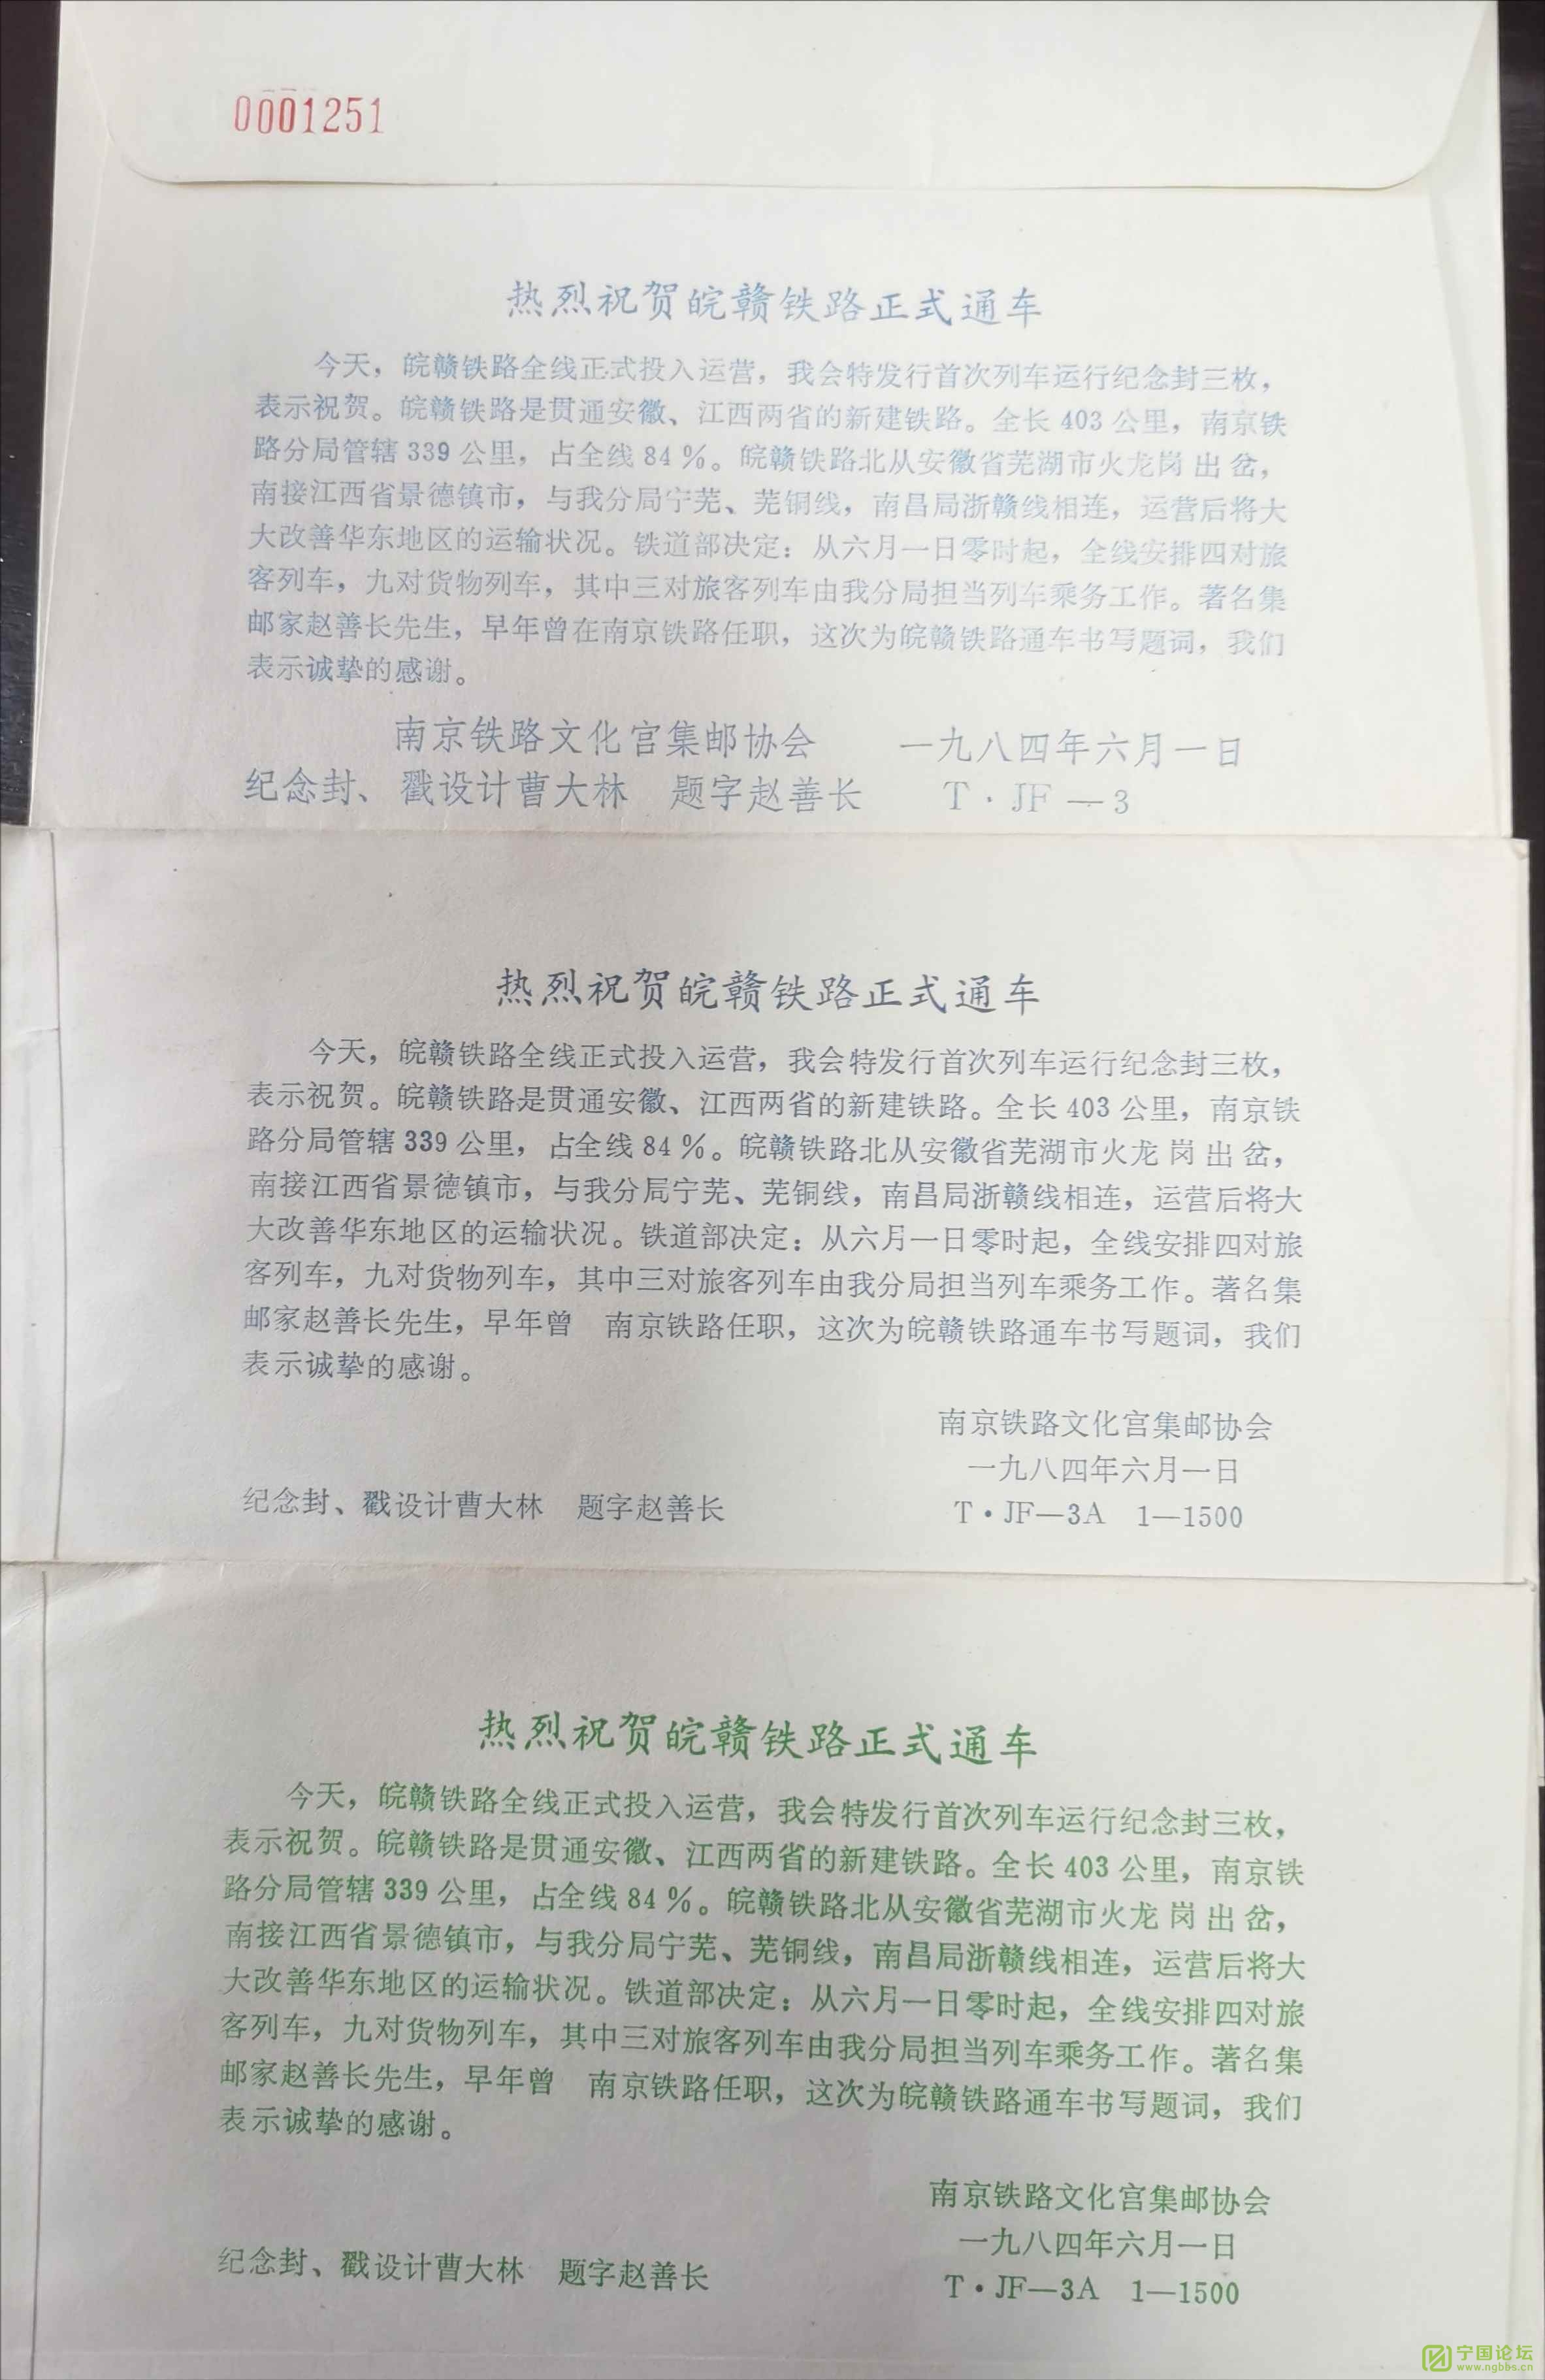 0001251
热烈祝贺皖赣铁路正式通车
今天，皖赣铁路全线正式投入运营，我会特发行首次列车运行纪念封三枚，
表示祝贺。皖赣铁路是贯通安徽、江西两省的新建铁路。全长 403 公里，南京铁
路分局管辖 339 公里，占全线 84 %。皖赣铁路北从安徽省芜湖市火龙岗 出 岔，
南接江西省景德镇市，与我分局宁芜、芜铜线，南昌局浙赣线相连，运营后将大
大改善华东地区的运输状况。铁道部决定：从六月一日零时起，全线安排四对旅
客列车，九对货物列车，其中三对旅客列车由我分局担当列车乘务工作。著名集
邮家赵善长先生，早年曾在南京铁路任职，这次为皖赣铁路通车书写题词，我们
表示诚挚的感谢。
南京铁路文化宫集邮协会 一九八四年六月一日
纪念封、戳设计曹大林 题字赵善长 T·JF—3
热烈祝贺皖赣铁路正式通车
今天，皖赣铁路全线正式投入运营，我会特发行首次列车运行纪念封三枚，
表示祝贺。皖赣铁路是贯通安徽、江西两省的新建铁路。全长 403 公里，南京铁
路分局管辖 339 公里，占全线 84 %。皖赣铁路北从安徽省芜湖市火龙 岗 出 岔，
南接江西省景德镇市，与我分局宁芜、芜铜线，南昌局浙赣线相连，运营后将大
大改善华东地区的运输状况。铁道部决定：从六月一日零时起，全线安排四对旅
客列车，九对货物列车，其中三对旅客列车由我分局担当列车乘务工作。著名集
邮家赵善长先生，早年曾 南京铁路任职，这次为皖赣铁路通车书写题词，我们
表示诚挚的感谢。
南京铁路文化宫集邮协会
一九八四年六月一日
纪念封、戳设计曹大林 题字赵善长 T·JF—3A 1—1500
热烈祝贺皖赣铁路正式通车
今天，皖赣铁路全线正式投入运营，我会特发行首次列车运行纪念封三枚，
表示祝贺。皖赣铁路是贯通安徽、江西两省的新建铁路。全长 403 公里，南京铁
路分局管辖 339 公里，占全线 84 %。皖赣铁路北从安徽省芜湖市火龙 岗 出 岔，
南接江西省景德镇市，与我分局宁芜、芜铜线，南昌局浙赣线相连，运营后将大
大改善华东地区的运输状况。铁道部决定：从六月一日零时起，全线安排四对旅
客列车，九对货物列车，其中三对旅客列车由我分局担当列车乘务工作。著名集
邮家赵善长先生，早年曾 南京铁路任职，这次为皖赣铁路通车书写题词，我们
表示诚挚的感谢。
南京铁路文化宫集邮协会
一九八四年六月一日
纪念封、戳设计曹大林 题字赵善长 T·JF—3A 1—1500
宁国论坛
www.ngbbs.cn